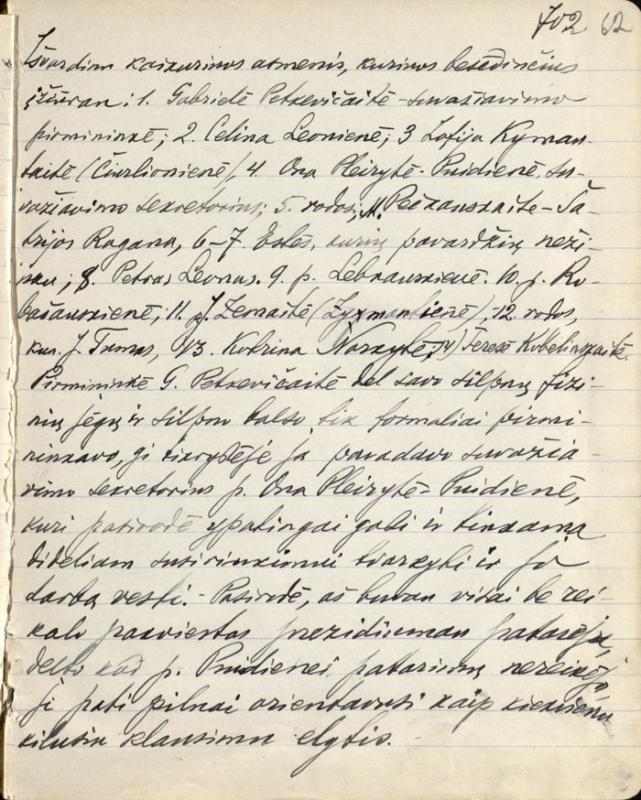 702 62
Išvardim kaikurinos asmenis, kurinos besėdinčius
įžiūran: 1. Gabrielė Petkevičaitė - suvažiavimo
pirmininkė; 2. Celina Leonienė; 3 Zofija Kyman-
taitė (Čiurlionienė), 4. Ona Pleirytė-Puidienė, su-
važiavimo sekretorius; 5. rodos, M. Pečkauskaitė-Ša-
trijos Ragana, 6-7. Estės, kurių pavardžių neži-
nau; 8. Petras Leonas. 9. p. Lebkauskienė. 10. p. Ro-
bačauskienė; 11. J. Zemaitė (Zymantienė), 12. rodos,
kun. J. Tumas, 13. Kotrina 14) Teresė Kubelinskaitė.
Pirmininkė G. Petkevičaitė del savo silpnų fizi-
nių jėgų ir silpno balso tik formaliai pirmi-
ninkavo, gi tikrybėje ja pavadavo suvažia-
vimo sekretorius p. Ona Pleirytė-Puidienė,
kuri pasirodė ypatingai gabi ir tinkama
dideliam susirinkimui tvarkyti ir jo
darbą vesti. - Pasirodė, aš buvau visai be rei-
kalo pakviestas prezidiuman patarėju,
delto kad p. Puidienei patarimų nereikėjo,
ji pati pilnai orientavosi kaip kiekvienu
kilusiu klausimu elgtis. -